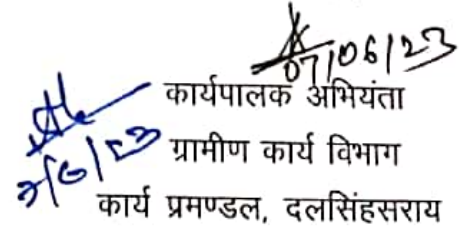 07/06/23
कार्यपालक अभियंता
7/6/23 ग्रामीण कार्य विभाग
कार्य प्रमण्डल, दलसिंहसराय